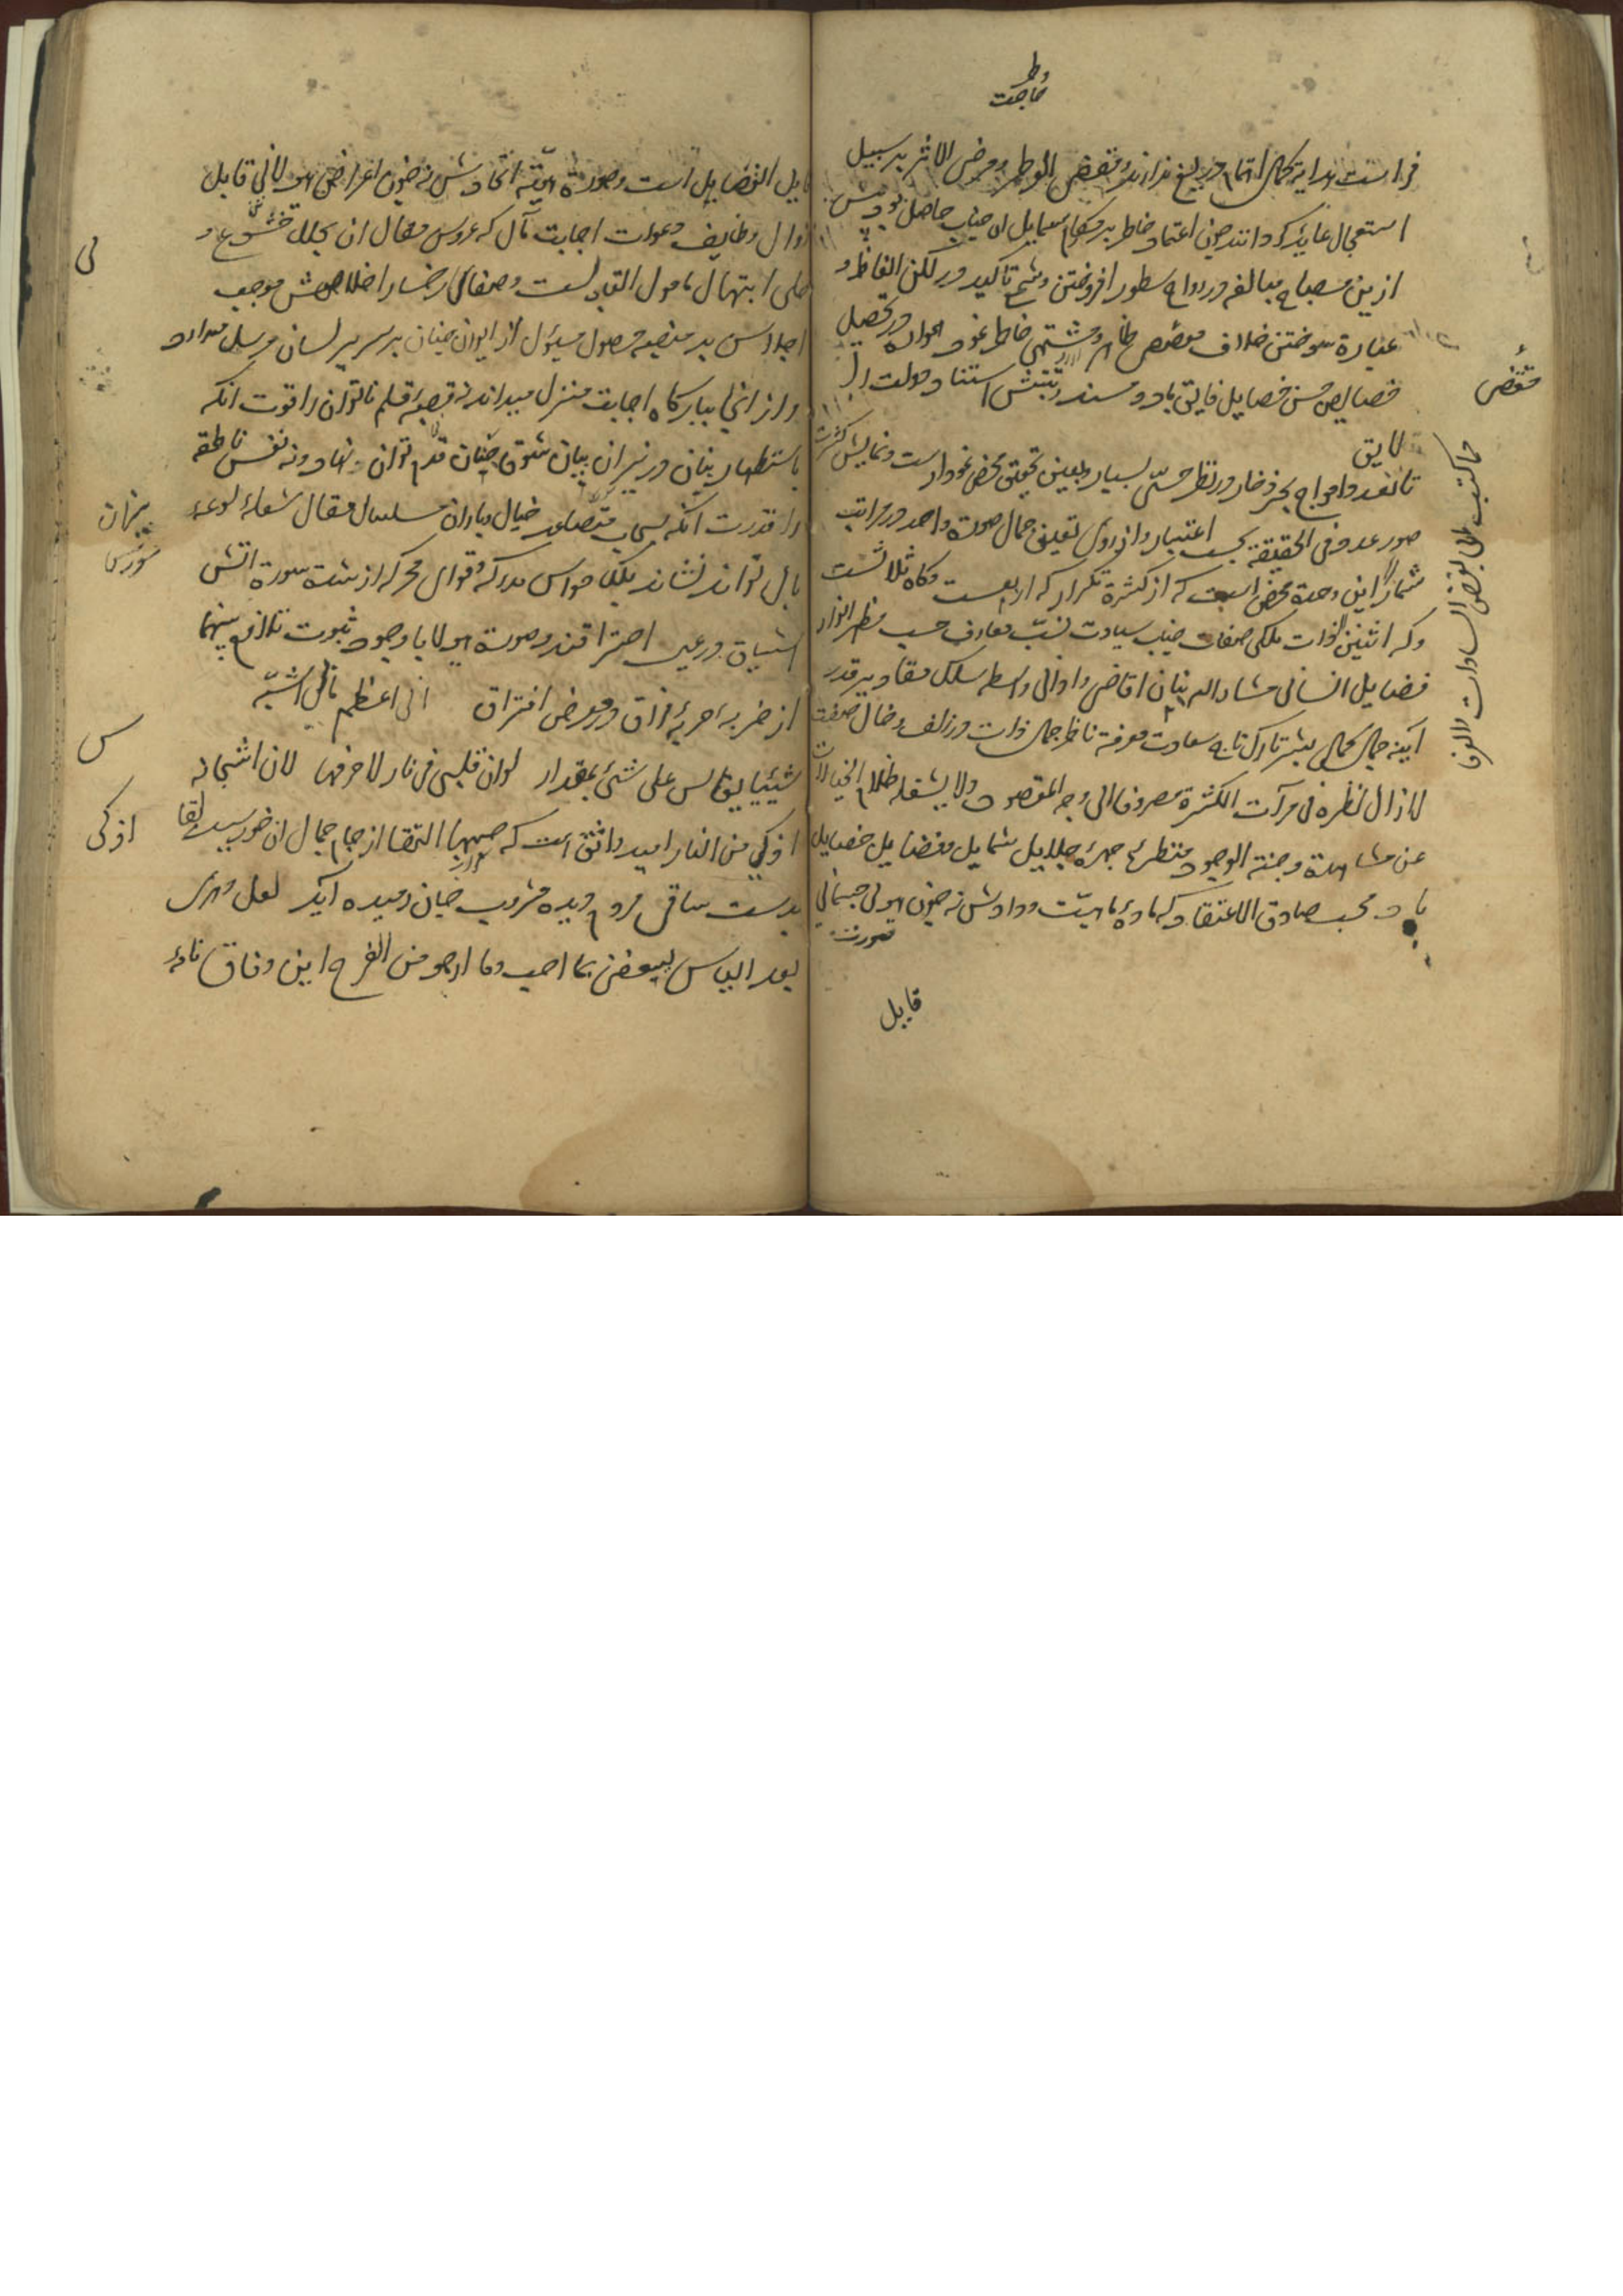 حاجت
فراست هدایة کمال اتمام دریغ ندارند و مقتضی الوطر و مرضی الاثر بر سبیل
استعجال عاید گردانند چون اعتماد خاطر بر مکارم شمایل آن جناب حاصل بود بیش
ازین مصباح مبالغه در رواج سطور افروختن و شمع تاکید در لکن الفاظ و
عبارة سوختن خلاف مخصوص خاطر و مشتهی خاطر نمود همواره در تحصیل
خصایص حسن خصایل فایق باد و مسند استناد دولت را
مقتضی
لایق
مما کتب الی بعض السادات
تا تعدد امواج بحر ذخار در نظر حسی بسیار و بعین تحقیق محض نمودارست و نمایش کثرت
صور عدد فی الحقیقة بحسب اعتبار و از روی تعین جمال صورة واحد در مراتب
شمار این وحدة محض است که از کثرة تکرار که اربعست و کاه ثلاثست
و که اثنین ذات ملکی صفات جناب سیادت نسب معارف حسب مظهر انوار
فضایل انسانی مشار الیه بنان اقاصی و ادانی واسطه سلک مقادیر قدر
آیینه جمال کمال بشر تارک تاج سعادت معرفة ناظر جمال ذات در زلف و خال صفت
لا زال نظره فی مرآت الکثرة مصروفا الی وجه المقصود ولا یشغله ظلام الخیالات
عن مشاهدة وجنة الوجود منتظر چهرهٔ جلایل شمایل و فضایل خصایل
باد محب صادق الاعتقاد که مادهٔ ماهیت ودادش نه چون هیولی جسمانی
صورت
قابل
قابل الفصایل است و صورة هویه اتحادش نه چون اعراض هیولانی قابل
زوال وظایف دعوات اجابت مآل که عروس مقال آن بحلل خشوع و
حلی ابتهال مامول القبولست و صفای رخسار اخلاصش موجب
لی
اجلاس بر منصه حصول مسئول از ایوان جنان بر سریر لسان مرسل میدارد
و از انجا ببارکاه اجابت منزل میداند نه قصبه قلم ناتوان را قوت آنکه
باستظهار بنان در نیران بیان شوق جنان قدم تواند نهاد و نه نفس ناطقه
را قدرت آنکه بسحاب متصاعد خیال و باران سلسال مقال شعلهٔ لوعه
نیران
سورش
بال تواند نشاند بلکه حواس مدرکه و قوای محرکه از شدة سورة آتش
اشتیاق در عین احتراقند و صورة هیولا با وجود ثبوت تلازم بینهما
از ضربهٔ حربهٔ فراق در معرض افتراق انی اعظم ما بی ان اشبه
شیئا یقاس علی شیئ بمقدار لو ان قلبی فی نار لاحرقها لان اشجانه
س
اذکی من النار امید واثق است که صهبای التقا از جام جمال آن خورسید لقا
اذکی
بدست ساقی مردم دیده مشروب جان رمیده آید لعل دهری
بعد الیاس یسعفنی بما احب وما ارجو من الفرح این وفاق نامه